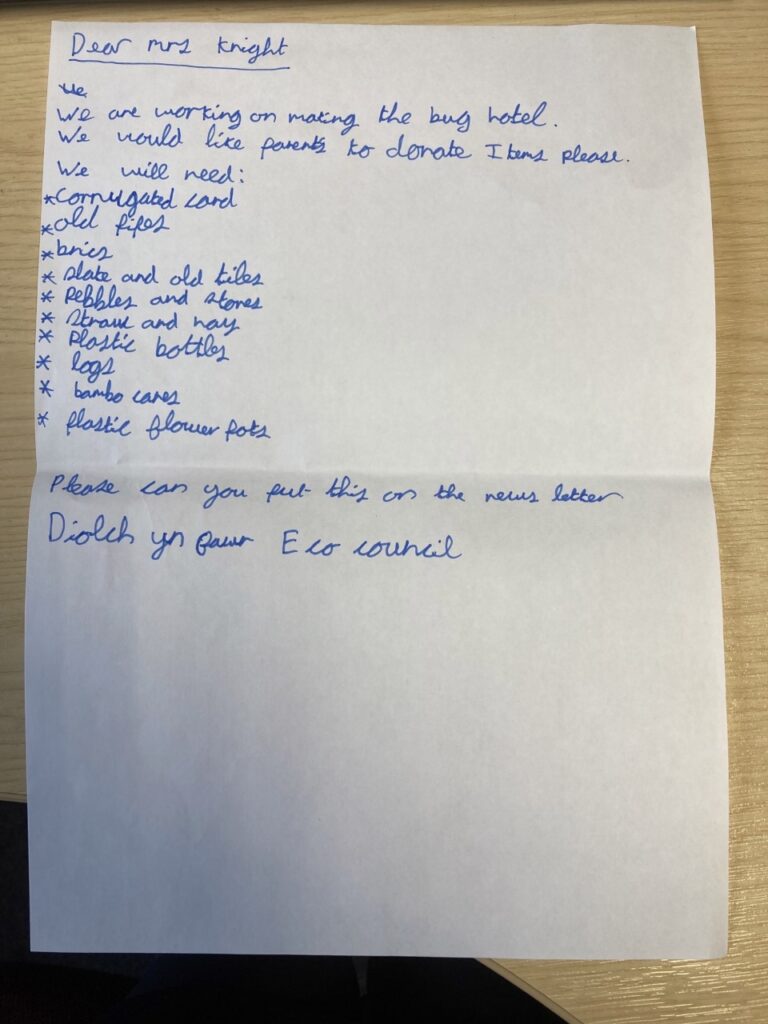 Dear mrs Knight
We
We are working on making the bug hotel.
We would like parents to donate Items please.
We will need:
*Corrugated card
*old pipes
*brics
* slate and old tiles
* Pebbles and stones
* Straw and hay
* Plastic bottles
* logs
* bambo canes
* plastic flower pots
Please can you put this on the news letter
Diolch yn fawr Eco council